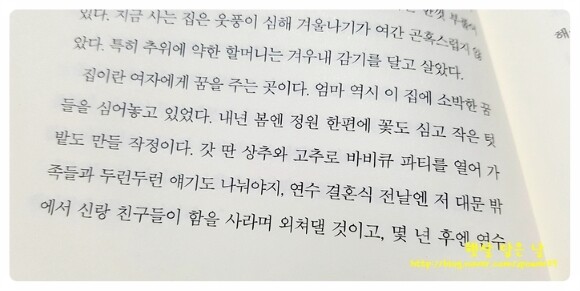 았다. 지금 사는 집은 웃풍이 심해 겨울나기가 여간 곤혹스럽지 않
았다. 특히 추위에 약한 할머니는 겨우내 감기를 달고 살았다.
집이란 여자에게 꿈을 주는 곳이다. 엄마 역시 이 집에 소박한 꿈
들을 심어놓고 있었다. 내년 봄엔 정원 한편에 꽃도 심고 작은 텃
밭도 만들 작정이다. 갓 딴 상추와 고추로 바비큐 파티를 열어 가
족들과 두런두런 얘기도 나눠야지, 연수 결혼식 전날엔 저 대문 밖
에서 신랑 친구들이 함을 사라며 외쳐댈 것이고, 몇 년 후엔 연수